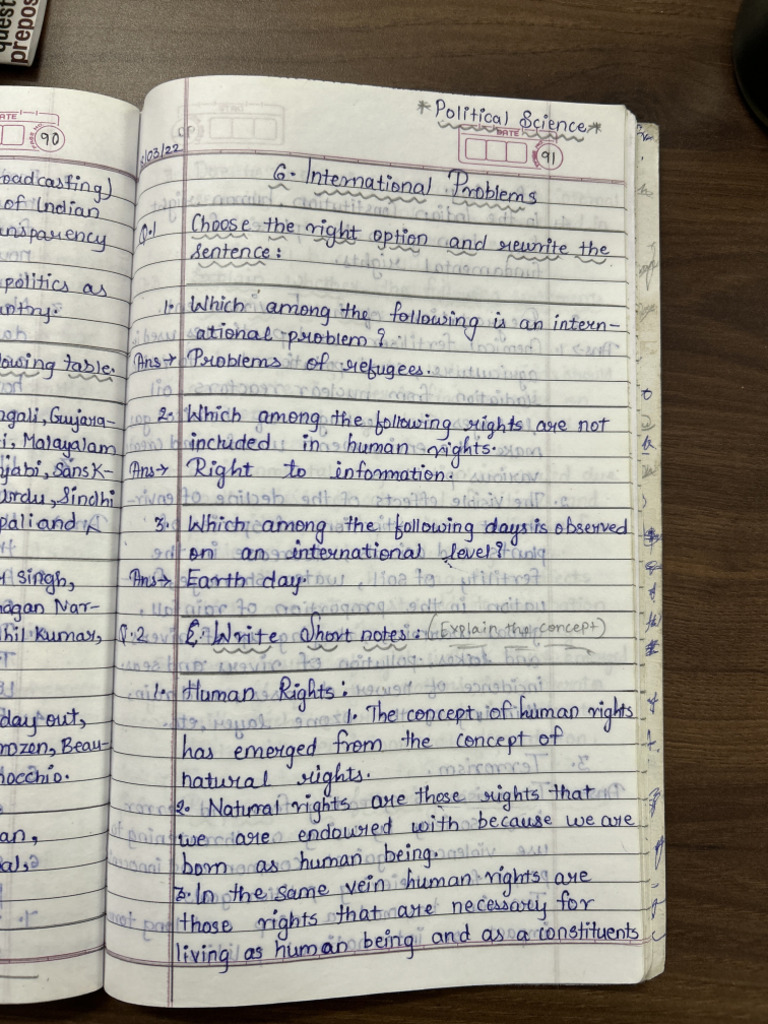 quest
prepos
ATE
90
oadcasting)
of Indian
ansparency
politics as
untry.
owing table.
ngali, Gujara-
i, Malayalam
jabi, Sansk-
Urdu, Sindhi
pali and
singh,
nagan Nar-
hil Kumar,
day out,
rozen, Beau-
nocchio.
an,
al,
*Political Science*
DATE
91
/03/22
6. International Problems
Q.1 Choose the right option and rewrite the
sentence:
1. Which among the following is an intern-
ational problem?
Ans→ Problems of refugees.
2. Which among the following rights are not
included in human rights.
Ans→ Right to information.
3. Which among the following days is observed
on an international level?
Ans→ Earth day.
Q.2 Write Short notes: (Explain the concept)
1. Human Rights:
1. The concept of human rights
has emerged from the concept of
natural rights.
2. Natural rights are those rights that
we are endoured with because we are
born as human being.
3. In the same vein human rights are
those rights that are necessary for
living as human being and as a constituents